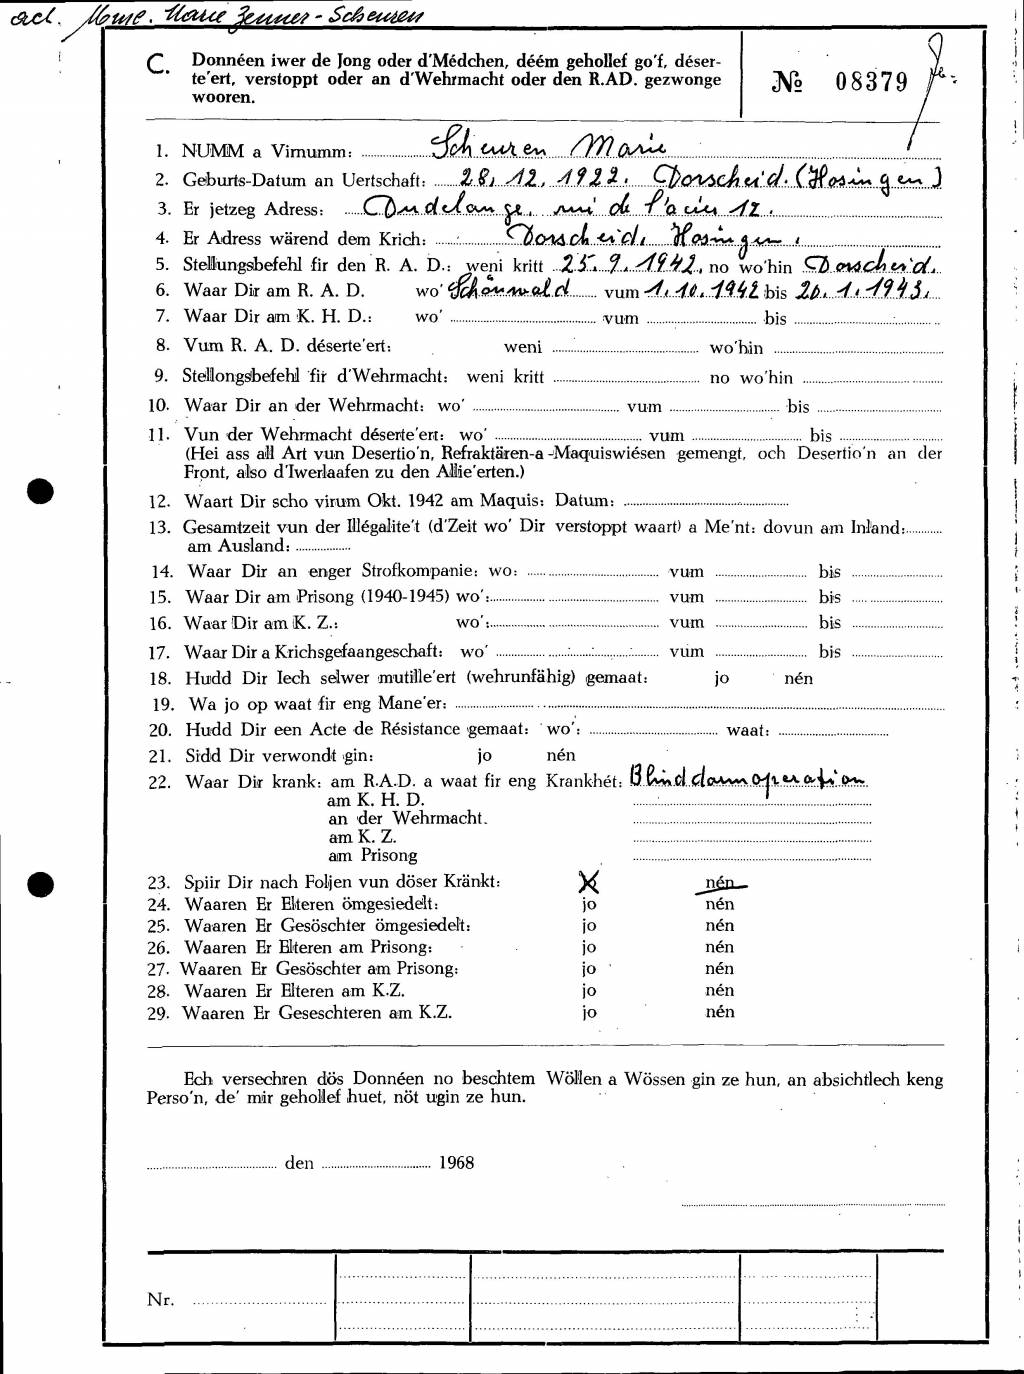 act. Mme. Marie Zenner-Scheuren
C. Donnéen iwer de Jong oder d'Médchen, déém gehollef go'f, déser-
te'ert, verstoppt oder an d'Wehrmacht oder den R.AD. gezwonge
wooren.
№ 08379
1. NUMM a Virnumm: Scheuren Marie
2. Geburts-Datum an Uertschaft: 28, 12, 1922. Dorscheid. (Hosingen)
3. Er jetzeg Adress: Dudelange, rue de l'acier 12.
4. Er Adress wärend dem Krich: Dorscheid, Hosingen.
5. Stellungsbefehl fir den R. A. D.: weni kritt 25. 9. 1942. no wo'hin Dorscheid.
6. Waar Dir am R. A. D. wo' Schönwald vum 1. 10. 1942 bis 20. 1. 1943.
7. Waar Dir am K. H. D.: wo' vum bis
8. Vum R. A. D. déserte'ert: weni wo'hin
9. Stellongsbefehl fir d'Wehrmacht: weni kritt no wo'hin
10. Waar Dir an der Wehrmacht: wo' vum bis
11. Vun der Wehrmacht déserte'ert: wo' vum bis
(Hei ass all Art vun Desertio'n, Refraktären-a-Maquiswiésen gemengt, och Desertio'n an der
Front, also d'Iwerlaafen zu den Allie'erten.)
12. Waart Dir scho virum Okt. 1942 am Maquis: Datum:
13. Gesamtzeit vun der Illégalite't (d'Zeit wo' Dir verstoppt waart) a Me'nt: dovun am Inland:
am Ausland:
14. Waar Dir an enger Strofkompanie: wo: vum bis
15. Waar Dir am Prisong (1940-1945) wo': vum bis
16. Waar Dir am K. Z.: wo': vum bis
17. Waar Dir a Krichsgefaangeschaft: wo' vum bis
18. Hudd Dir Iech selwer mutille'ert (wehrunfähig) gemaat: jo nén
19. Wa jo op waat fir eng Mane'er:
20. Hudd Dir een Acte de Résistance gemaat: wo': waat:
21. Sidd Dir verwondt gin: jo nén
22. Waar Dir krank: am R.A.D. a waat fir eng Krankhét: Blinddarmoperation
am K. H. D.
an der Wehrmacht.
am K. Z.
am Prisong
23. Spiir Dir nach Foljen vun döser Kränkt: jo nén
24. Waaren Er Elteren ömgesiedelt: jo nén
25. Waaren Er Gesöschter ömgesiedelt: jo nén
26. Waaren Er Elteren am Prisong: jo nén
27. Waaren Er Gesöschter am Prisong: jo nén
28. Waaren Er Elteren am K.Z. jo nén
29. Waaren Er Geseschteren am K.Z. jo nén
Ech versechren dös Donnéen no beschtem Wöllen a Wössen gin ze hun, an absichtlech keng
Perso'n, de' mir gehollef huet, nöt ugin ze hun.
den 1968
Nr.